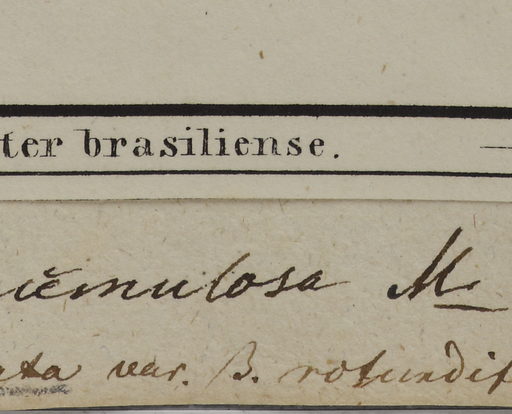 ter brasiliense.
emulosa M
ata var. B. rotundif